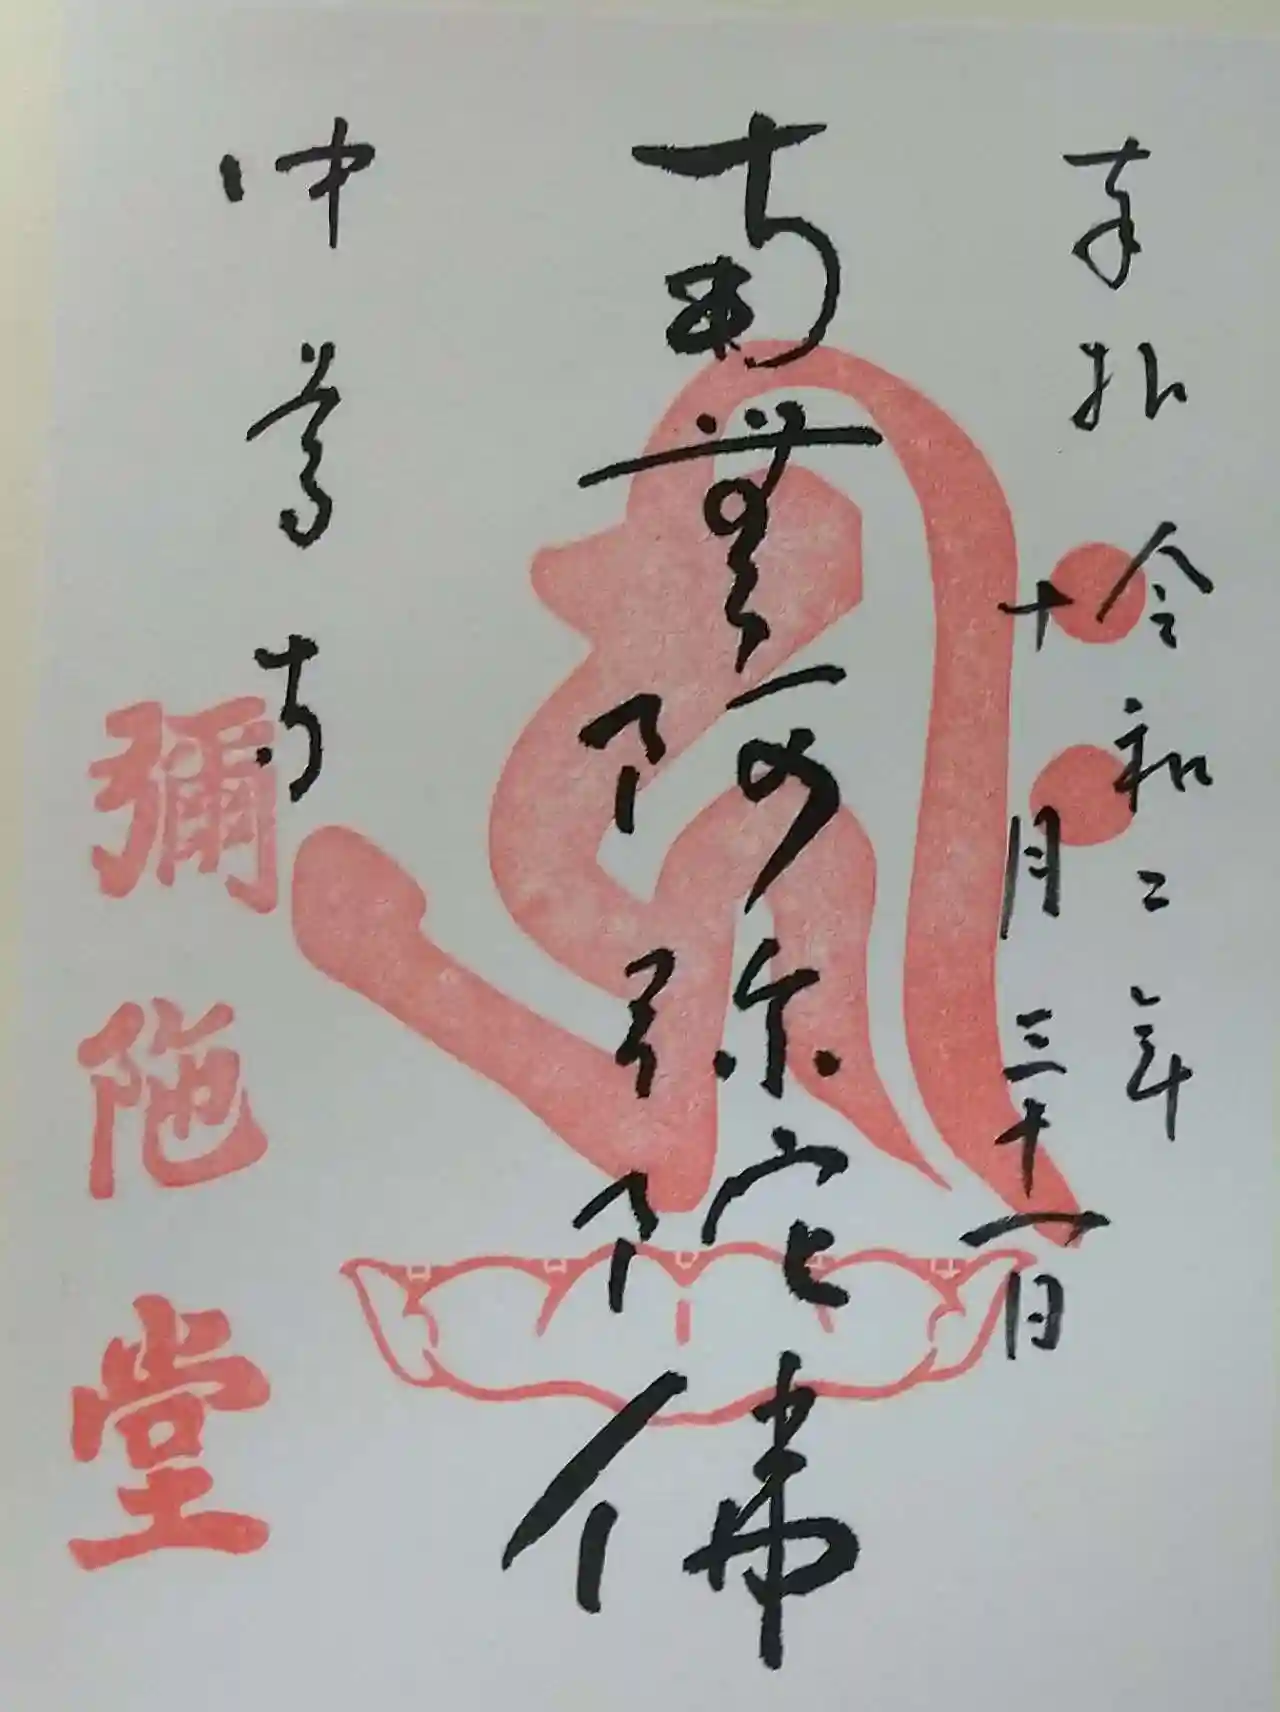 奉拝
令和二年
十月三十一日
南無阿弥陀佛
中尊寺
彌陀堂